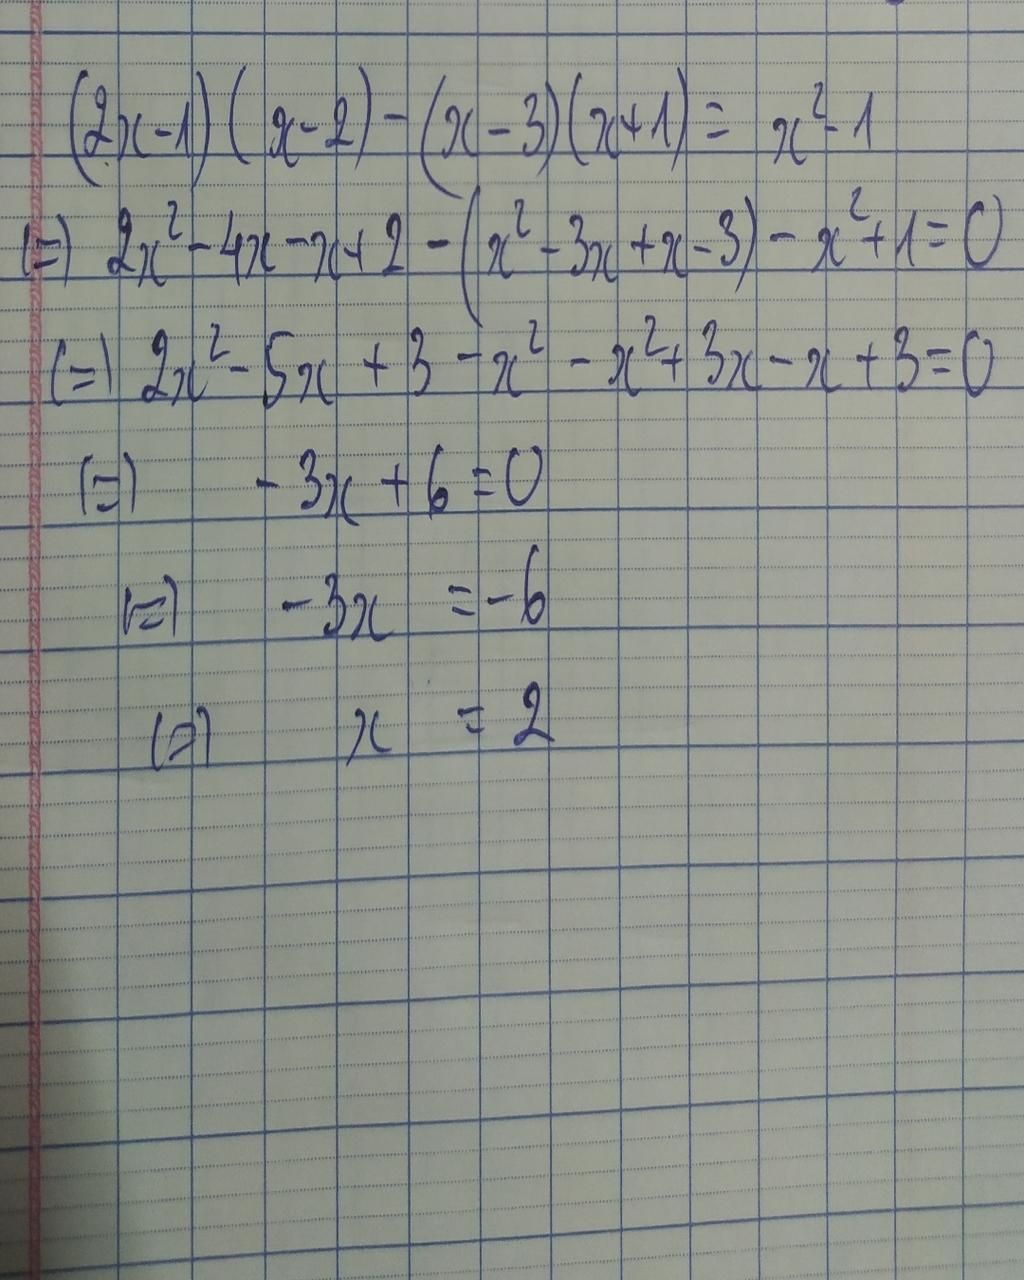 (2x-1)(x-2)-(x-3)(x+1)= x²-1
(=) 2x²-4x-x+2-(x²-3x+x-3)-x²+1=0
(=) 2x²-5x+3-x²-x²+3x-x+3=0
(=) -3x+6=0
(=) -3x =-6
(=) x = 2